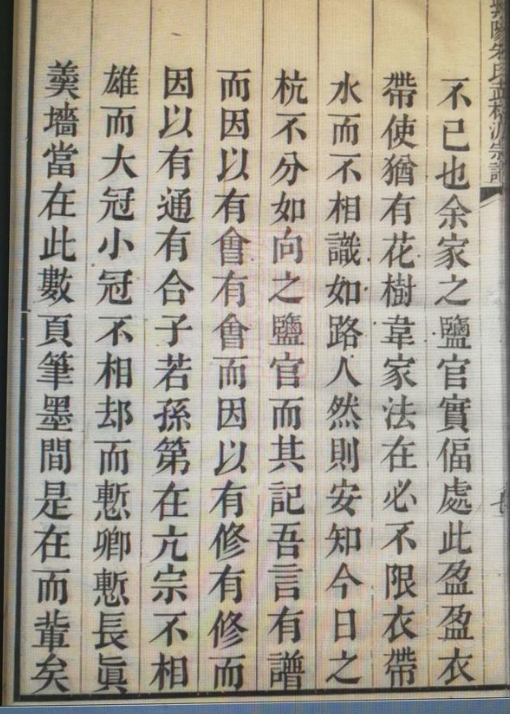 不已也余家之鹽官實偪處此盈盈衣
帶使猶有花樹韋家法在必不限衣帶
水而不相識如路人然則安知今日之
杭不分如向之鹽官而其記吾言有譜
而因以有會有會而因以有修有修而
因以有通有合子若孫第在亢宗不相
雄而大冠小冠不相却而慙卿慙長眞
羹墻當在此數頁筆墨間是在而輩矣